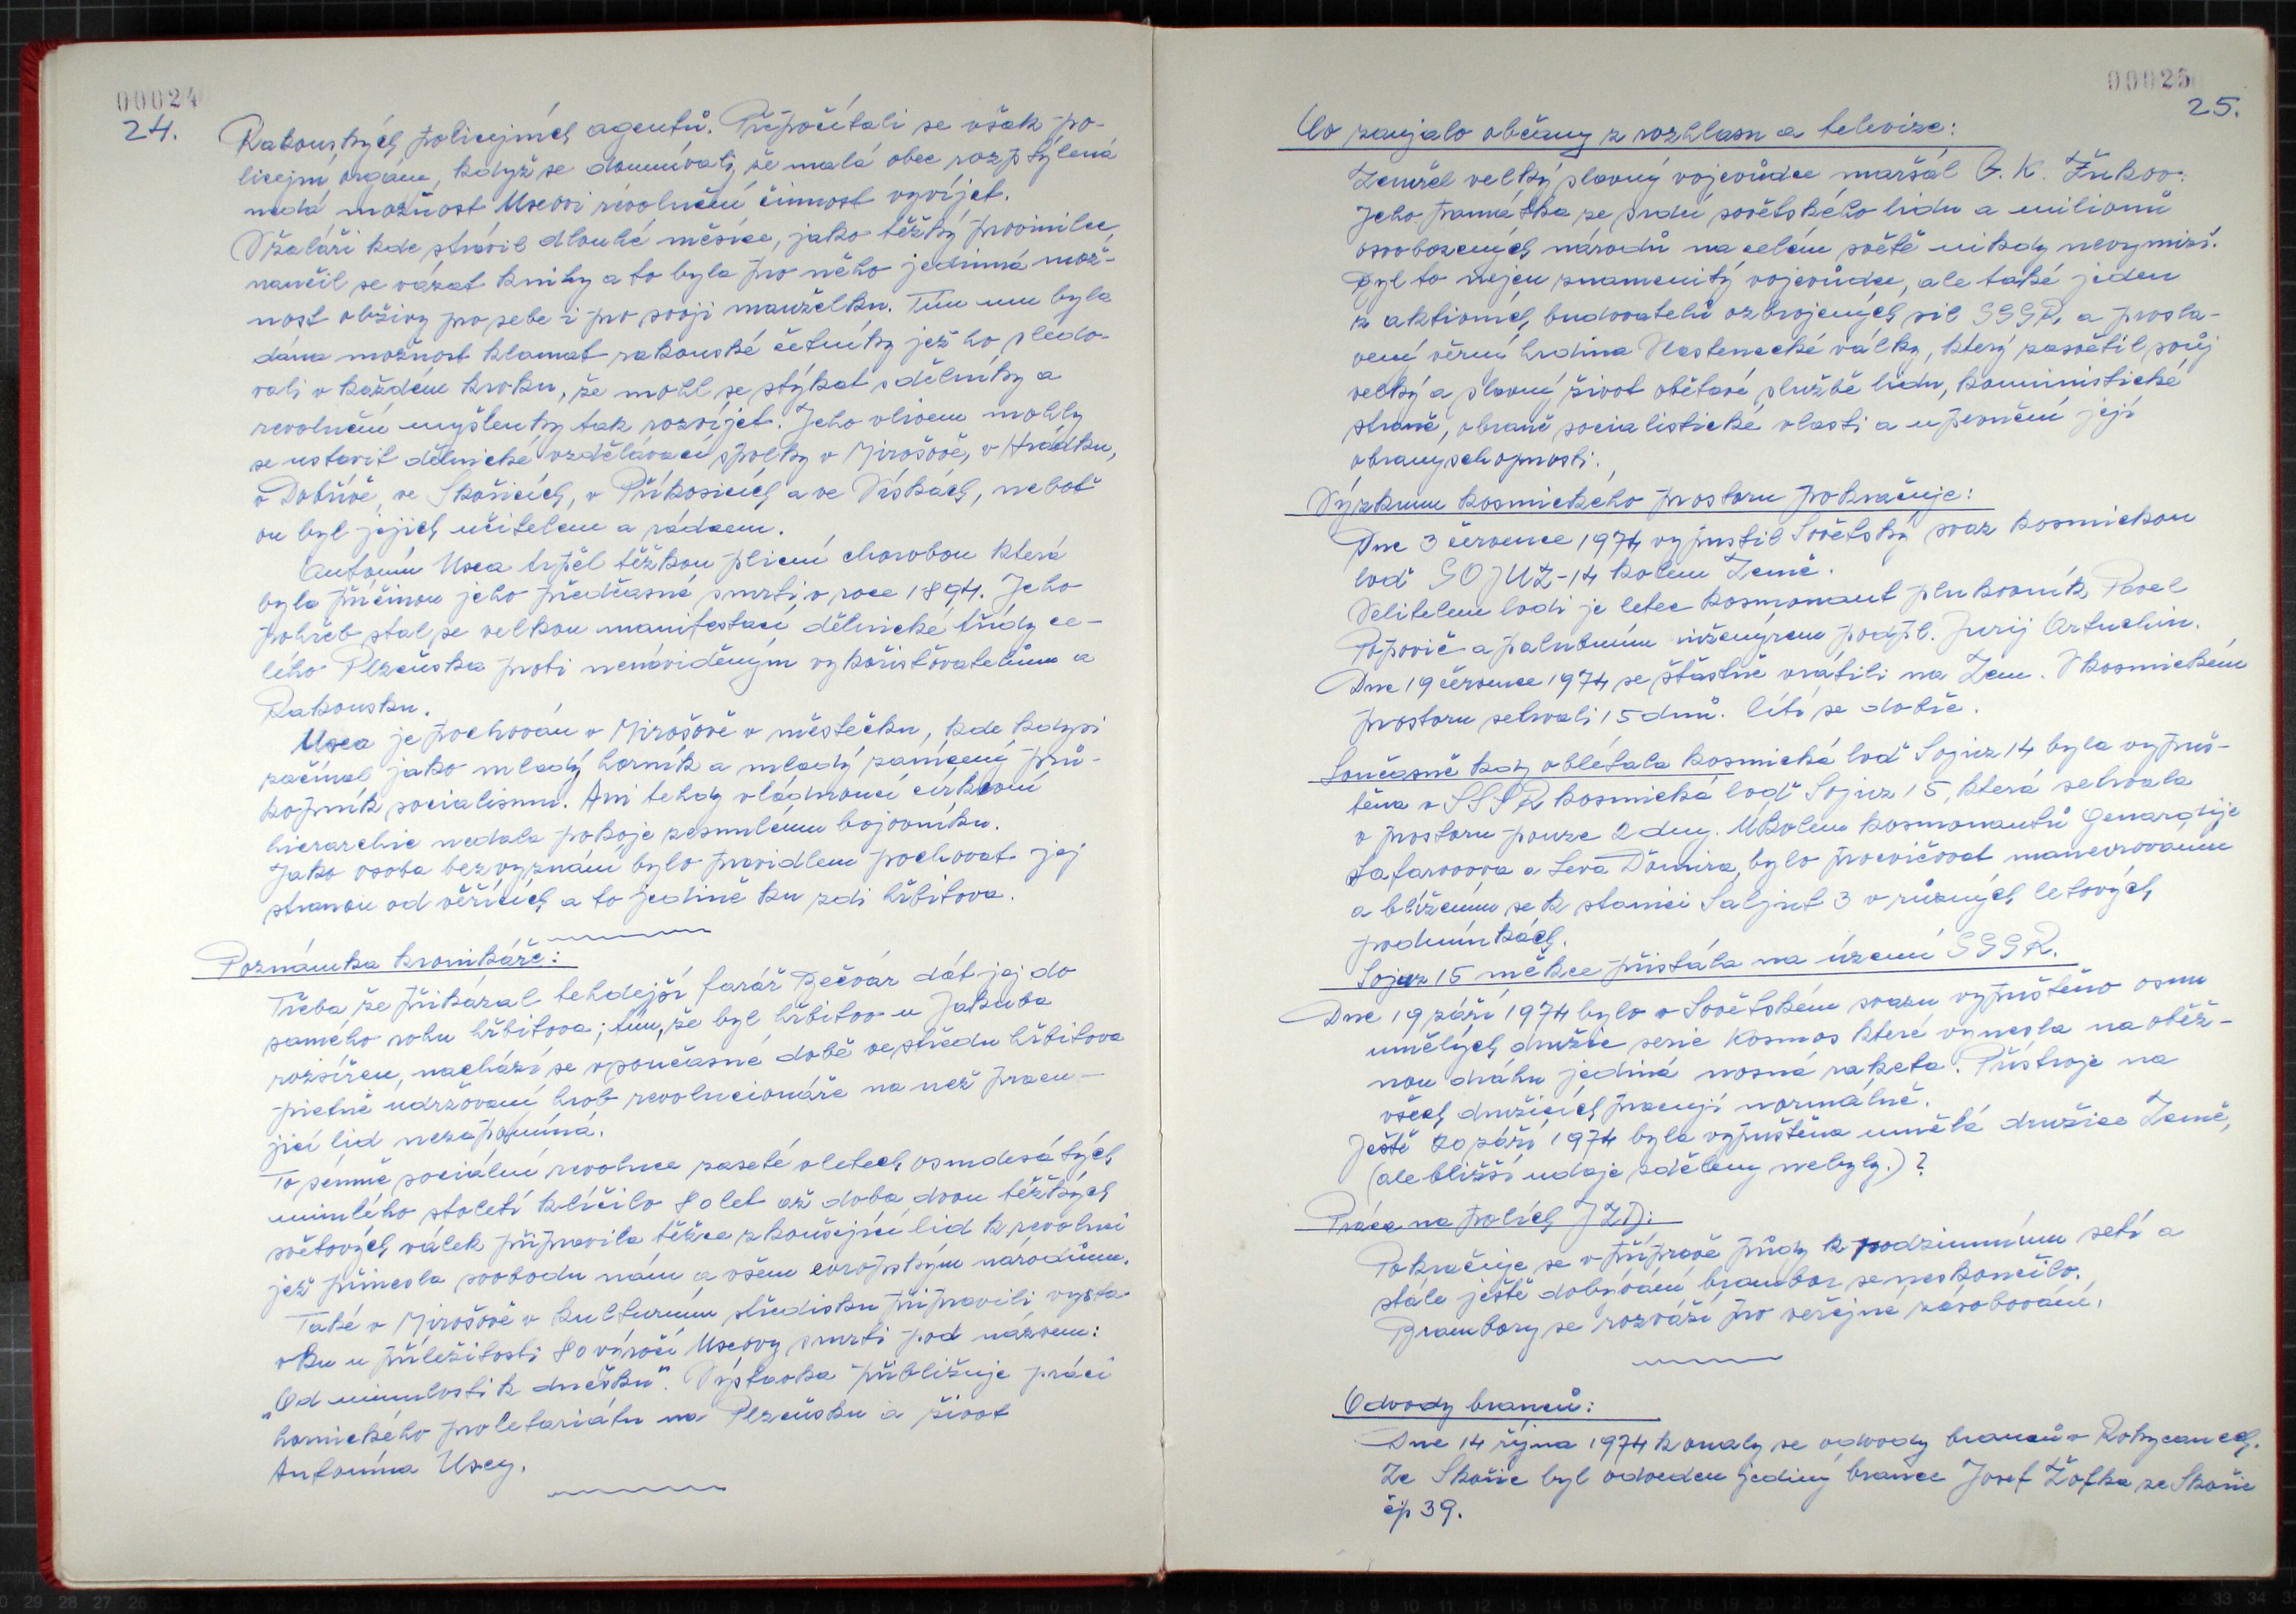 00024
24.
Rakouských policejních agentů. Přepočítali se však po-
licejní orgánu, když se domnívali, že malá obec rozptýlená
nedá možnost Uscovi revoluční činnost vyvíjet.
Vžaláři kde strávil dlouhé měsíce, jako těžký provinilec,
naučil se vázat knihy a to byla pro něho jedinná mož-
nost obživy pro sebe i pro svoji manželku. Tím mu byla
dána možnost klamat rakouské četníky jež ho sledo-
vali v každém kroku, že mohl se stýkat s dělníky a
revoluční myšlenky tak rozvíjet. Jeho vlivem mohly
se ustavit dělnické vzdělávací spolky v Mirošově, v Hrádku,
v Dobřívě, ve Skořicích, v Příkosicích a ve Vískách, neboť
on byl jejich učitelem a rádcem.
Antonín Usca trpěl těžkou plicní chorobou která
byla příčinou jeho předčasné smrti v roce 1894. Jeho
pohřeb stal se velkou manifestací dělnické třídy ce-
lého Plzeňska proti nenáviděným vykořisťovatelům a
Rakousku.
Usca je pochován v Mirošově v městečku, kde kdysi
začínal jako mladý horník a mladý zanícený prů-
kopník socialismu. Ani tehdy vládnoucí církevní
hierarchie nedala pokoje zesnulému bojovníku.
Jako osoba bez vyznání bylo pravidlem pochovat jej
stranou od věřících a to jedině ku zdi hřbitova.
Poznámka kronikáře:
Třeba že přikázal tehdejší farář Bečvár dát jej do
samého rohu hřbitova; tím, že byl hřbitov u Jakuba
rozšířen, nachází se v současné době ve středu hřbitova
pietně udržovaní hrob revolucionáře na než pracu-
jící lid nezapomíná.
To sémně sociální revoluce zaseté v letech osmdesátých
minlého století klíčilo 80 let až doba dvou těžkých
světových válek připravila těžce zkoušející lid k revoluci
jež přinesla svobodu nám a všem evropským národům.
Také v Mirošově v kulturním středisku připravili výsta-
vku u příležitosti 80 výročí Uscovy smrti pod názvem:
„Od minulosti k dnešku". Výstavka přibližuje práci
hornického proletariátu na Plzeňsku a život
Antonína Uscy.
00025
25.
Co zaujalo občany z rozhlasu a televize:
Zemřel velký slavný vojevůdce maršál G. K. Žukov.
Jeho památka ze srdcí sovětského lidu a milionů
osvobozených národů na celém světě nikdy nevymizí.
Byl to nejen znamenitý vojevůdce, ale také jeden
z aktivních budovatelů ozbrojených sil SSSR, a prosla-
vený věrní hrdina Vlastenecké války, který zasvětil svůj
velký a slavný život obětavé službě lidu, kominnistické
straně, obraně socialistické vlasti a upevnění její
obranyschopnosti.
Výzkum kosmického prostoru pokračuje:
Dne 3 července 1974 vypustil Sovětský svaz kosmickou
loď SOJUZ-14 kolem Země.
Velitelem lodi je letec kosmonaut plukovník Pavel
Popovič a palubním inženýrem podpl. Jurij Artuchin.
Dne 19 července 1974 se šťastně vrátili na Zem. Vkosmickém
prostoru setrvali 15 dnů. Cítí se dobře.
Současně kdy oblétala kosmická loď Sojuz 14 byla vypuš-
těna v SSSR kosmická loď Sojuz 15, která setrvala
v prostoru pouze 2 dny. Úkolem kosmonautů Genardije
Safarovova a Leva Dömira, bylo procvičovat manevrováním
a blížením se k stanici Saljut 3 v různých letových
podmínkách.
Sojuz 15 měkce přistála na území SSSR.
Dne 19 září 1974 bylo v Sovětském svazu vypuštěno osm
umělých družic serie Kosmos které vynesla na oběž-
nou dráhu jediná nosná raketa. Přístroje na
všech družicích pracují normálně.
Ještě 20 září 1974 byla vypuštěna umělá družice Země,
(ale bližší udaje sděleny nebyly.) ?
Práce na polích JZD:
Pokračuje se v přípravě půdy k podzimnímu setí a
stále ještě dobývání brambor se neskončilo.
Brambory se rozváží pro veřejné zásobování.
Odvody branců:
Dne 14 října 1974 konaly se odvody branců v Rokycanech.
Ze Skořic byl odveden jediný branec Josef Žofka ze Skořic
čp 39.